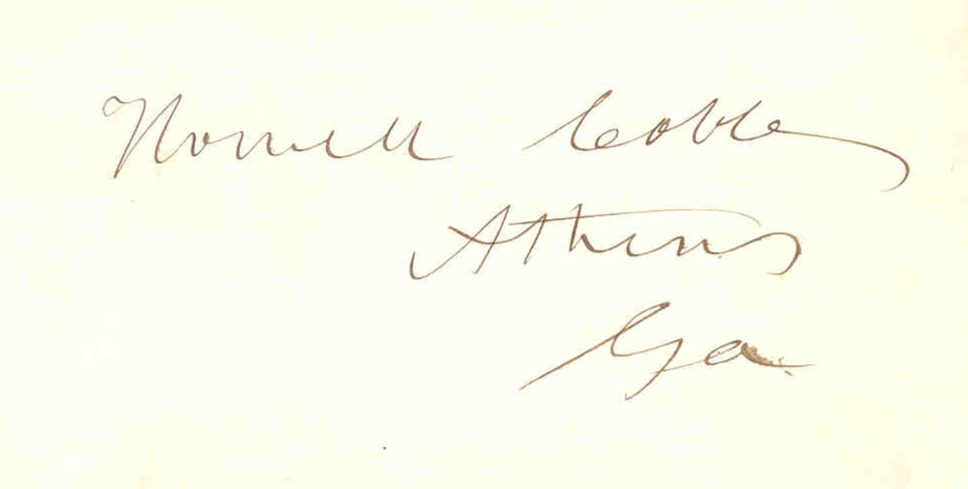 Howell Cobb
Athens
Ga.